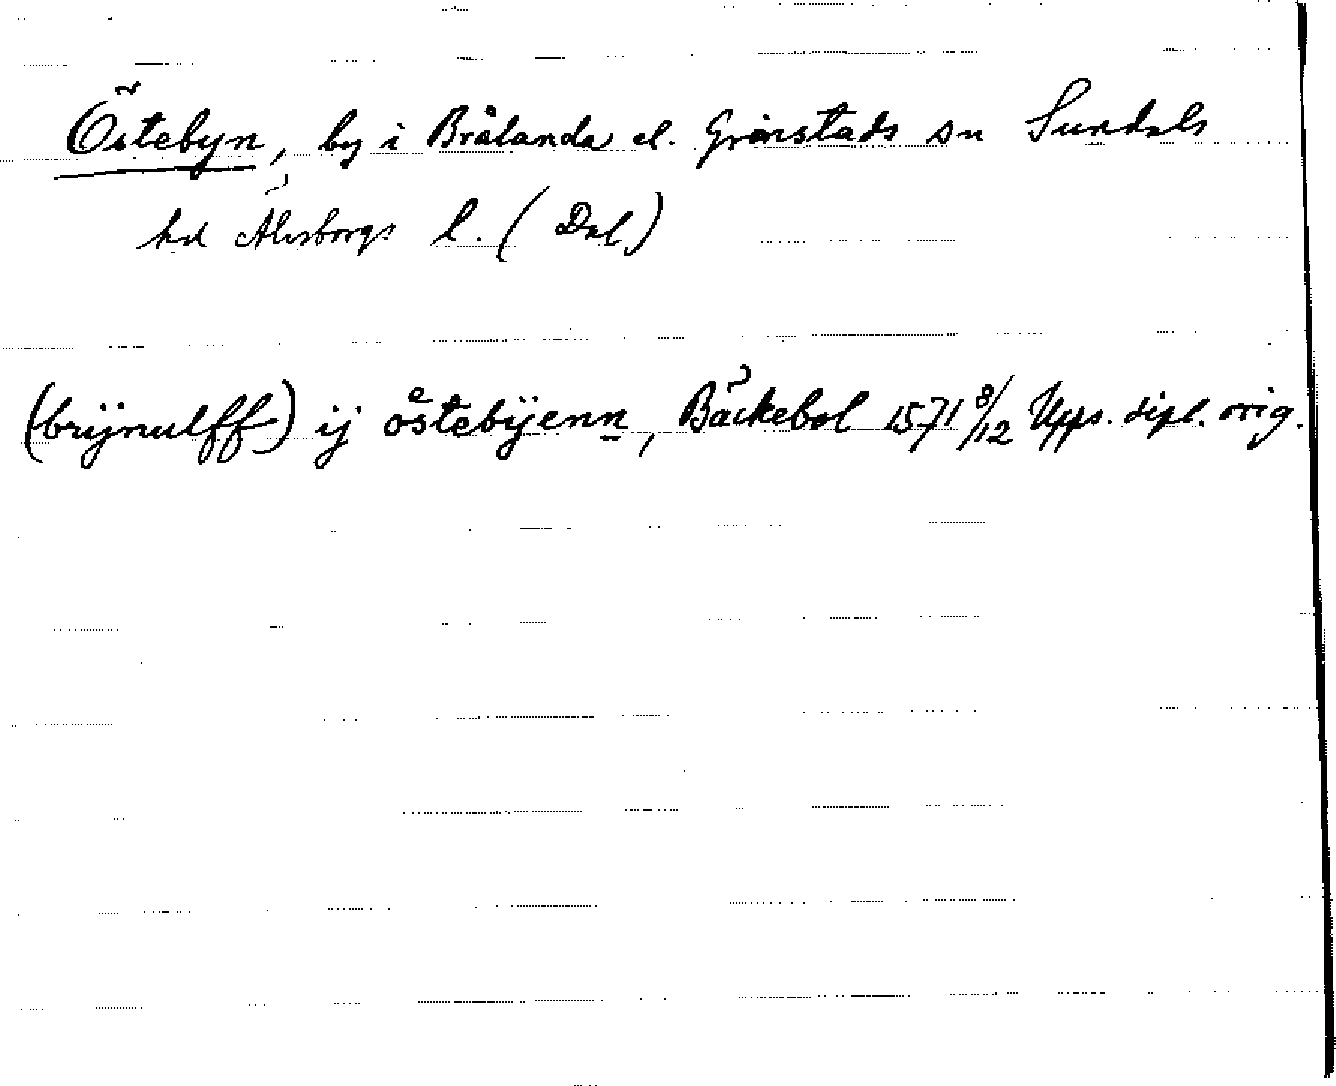 Östebyn, by i Brålanda el. Grinstads sn Sundals
hd Älvsborgs l. (Dal)
(brÿnulff) ij oͤstebÿenn, Bäckebol 1571 8/12 Upps. dipl. orig.